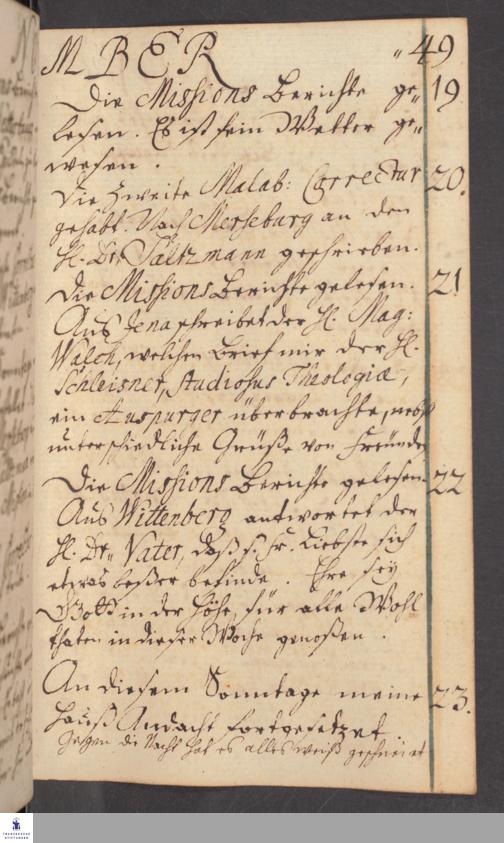 MBER " 49
Die Missions Berichte ge= 19
lesen. Es ist fein Wetter ge=
wesen.
Die zweite Malab: Correctur 20.
gehabt. Nach Merseburg an den
H. Dr. Saltzmann geschrieben.
Die Missions Berichte gelesen. 21
Aus Jena schreibet der H. Mag:
Walch, welchen Brief mir der H.
Schleisner, Studiosus Theologiæ,
ein Auspurger überbrachte, nebst
unterschiedliche Grüße von Freunden
Die Missions Berichte gelesen. 22
Aus Wittenberg antwortet der
H. Dr. Vater, daß s. Fr. Liebste sich
etwas beßer befinde. Ehre sey
Gott in der Höhe, für alle Wohl
thaten in dieser Woche genoßen.
An diesem Sonntage meine 23.
Hauß Andacht fortgesetzet.
Gegen die Nacht hat es alles weiß geschneiet
FRANCKESCHE
STIFTUNGEN